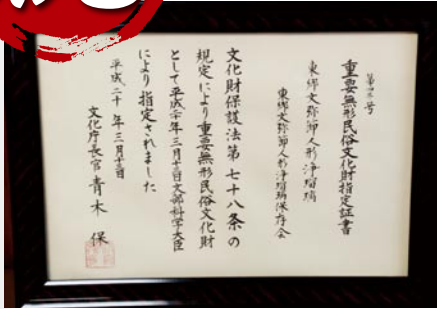 重要無形民俗文化財指定証書
東郷文弥節人形浄瑠璃
東郷文弥節人形浄瑠璃保存会
文化財保護法第七十八条の
規定により重要無形民俗文化財
として平成二十年三月十三日文部科学大臣
により指定されました
平成二十年三月十三日
文化庁長官 青木 保